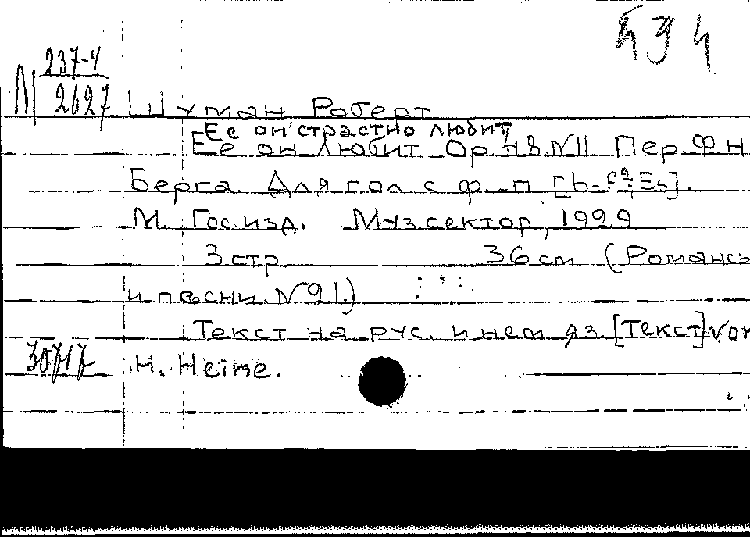 237-4
2627
Шуман Роберт
Ее он страстно любит
Ее он любит Ор. 48. №11 Пер. Ф Н
Берга Для гол. с ф.-п.
М. Гос. изд. Музсектор, 1929
3 стр. 36 см (Романсы
и песни. №91.)
Текст на рус. и нем. яз. [Текст] von
30717 H. Heine.